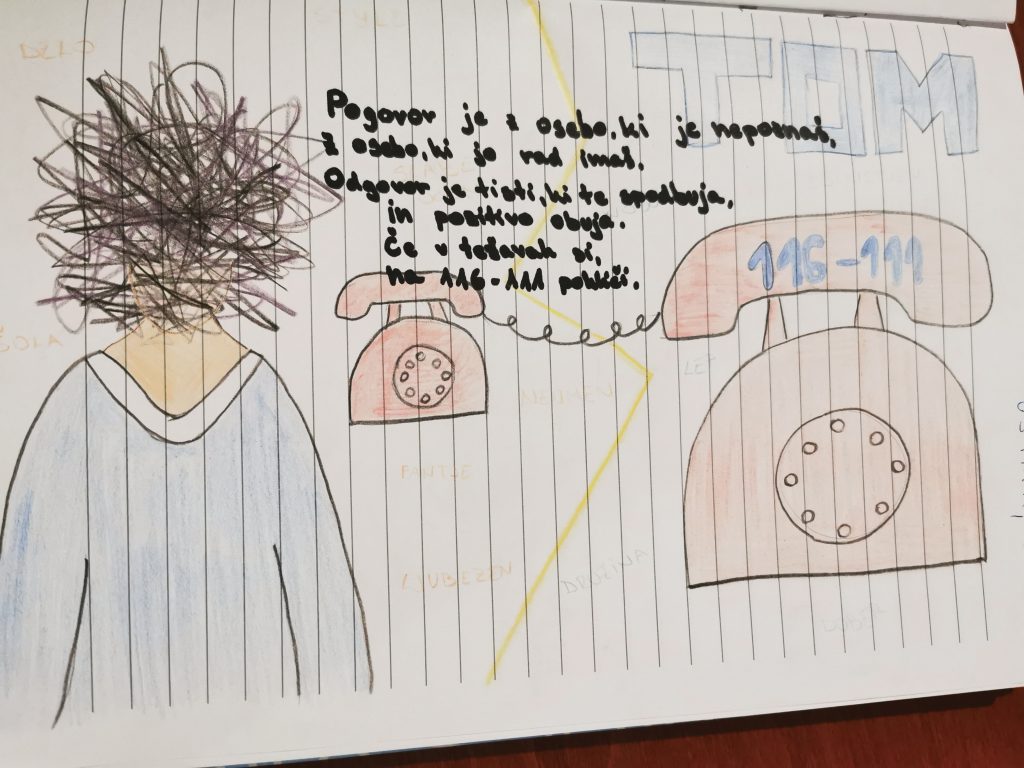 DELO
STYLE
TOM
Pogovor je z osebo, ki je nepoznaš,
z osebo, ki jo rad imaš.
Odgovor je tisti, ki te spodbuja,
in pozitivo obuja.
Če v težavah si,
na 116-111 pokliči.
116-111
ŠOLA
LEP
FANTJE
LJUBEZEN
DRUŽINA